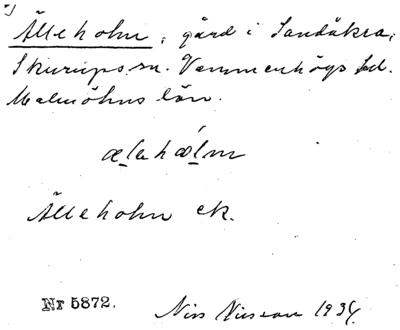 Älleholm, gård i Sandåkra,
Skurups sn. Vemmenhögs hd.
Malmöhus län.
ælahólm
Älleholm ek.
Nr 5872. Nils Nilsson 1934.